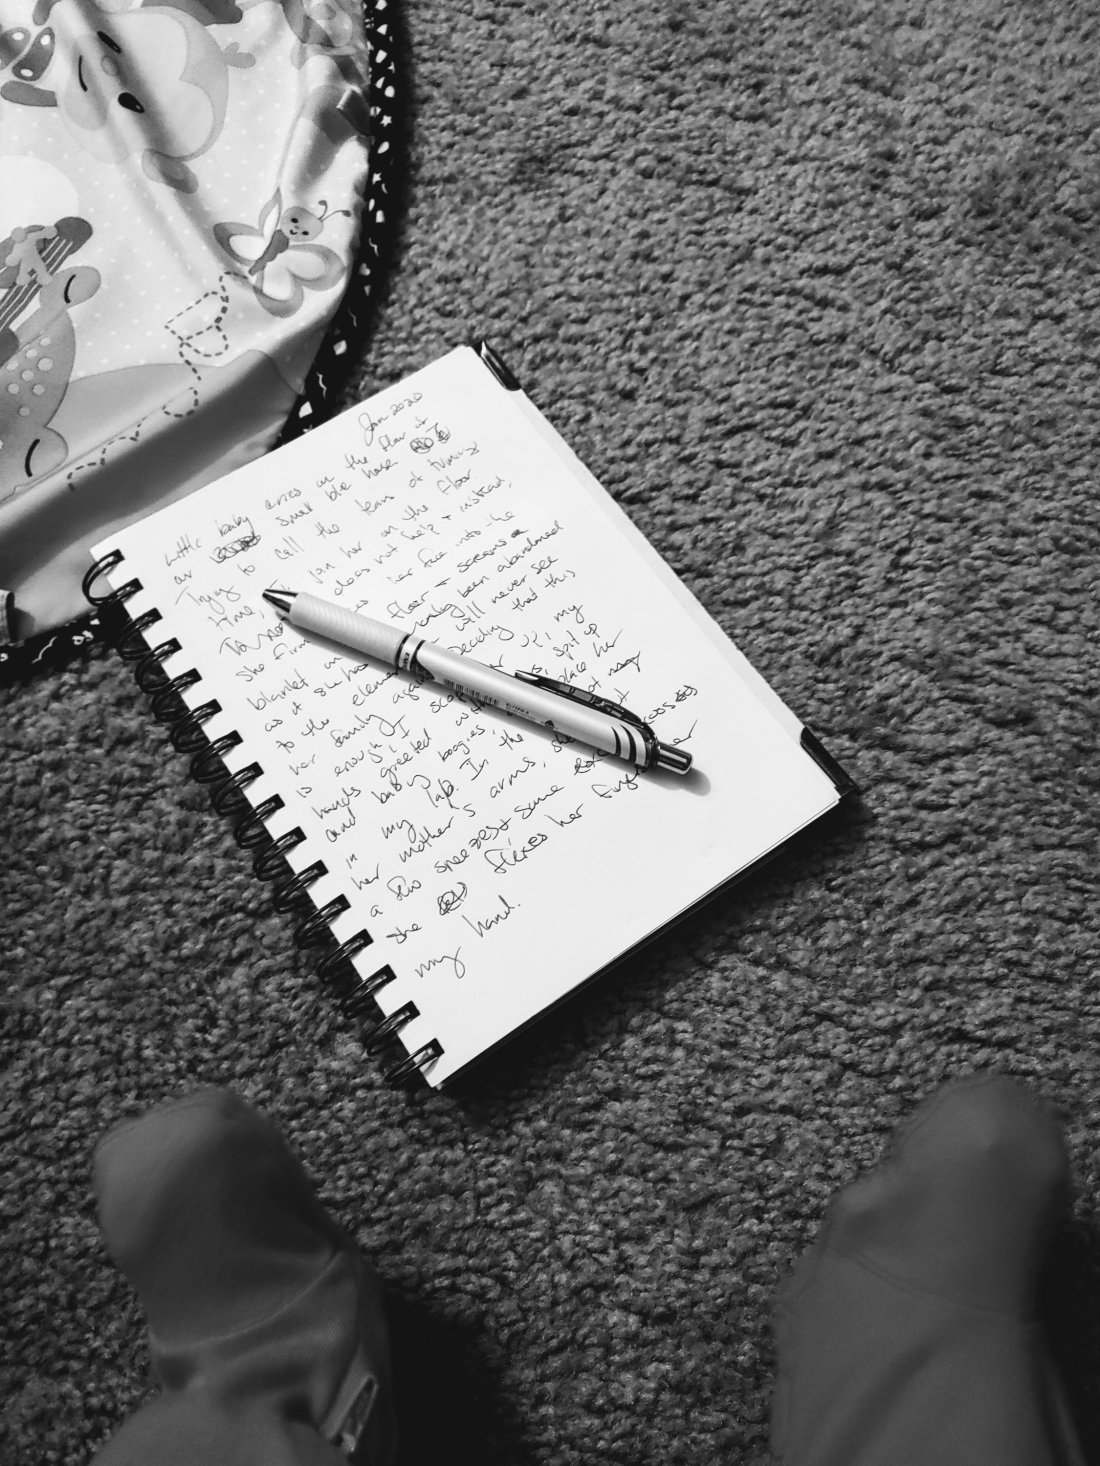 Jan 2020
Little baby cries on the floor +
our small ble hose
Trying to call the tears of tummy
time, I join her on the floor.
does not help + instead,
she firm her face into the
blanket on floor + screams
as if she has been abandoned
to the elemen + will never see
her family again Deciding that this
is enough, I scoop her up; my
hands greeted with spit up
and baby boogies. I place her
in my lap. In the not
her mother's arms, she
a few sneezes + some
she flexes her finge
my hand.